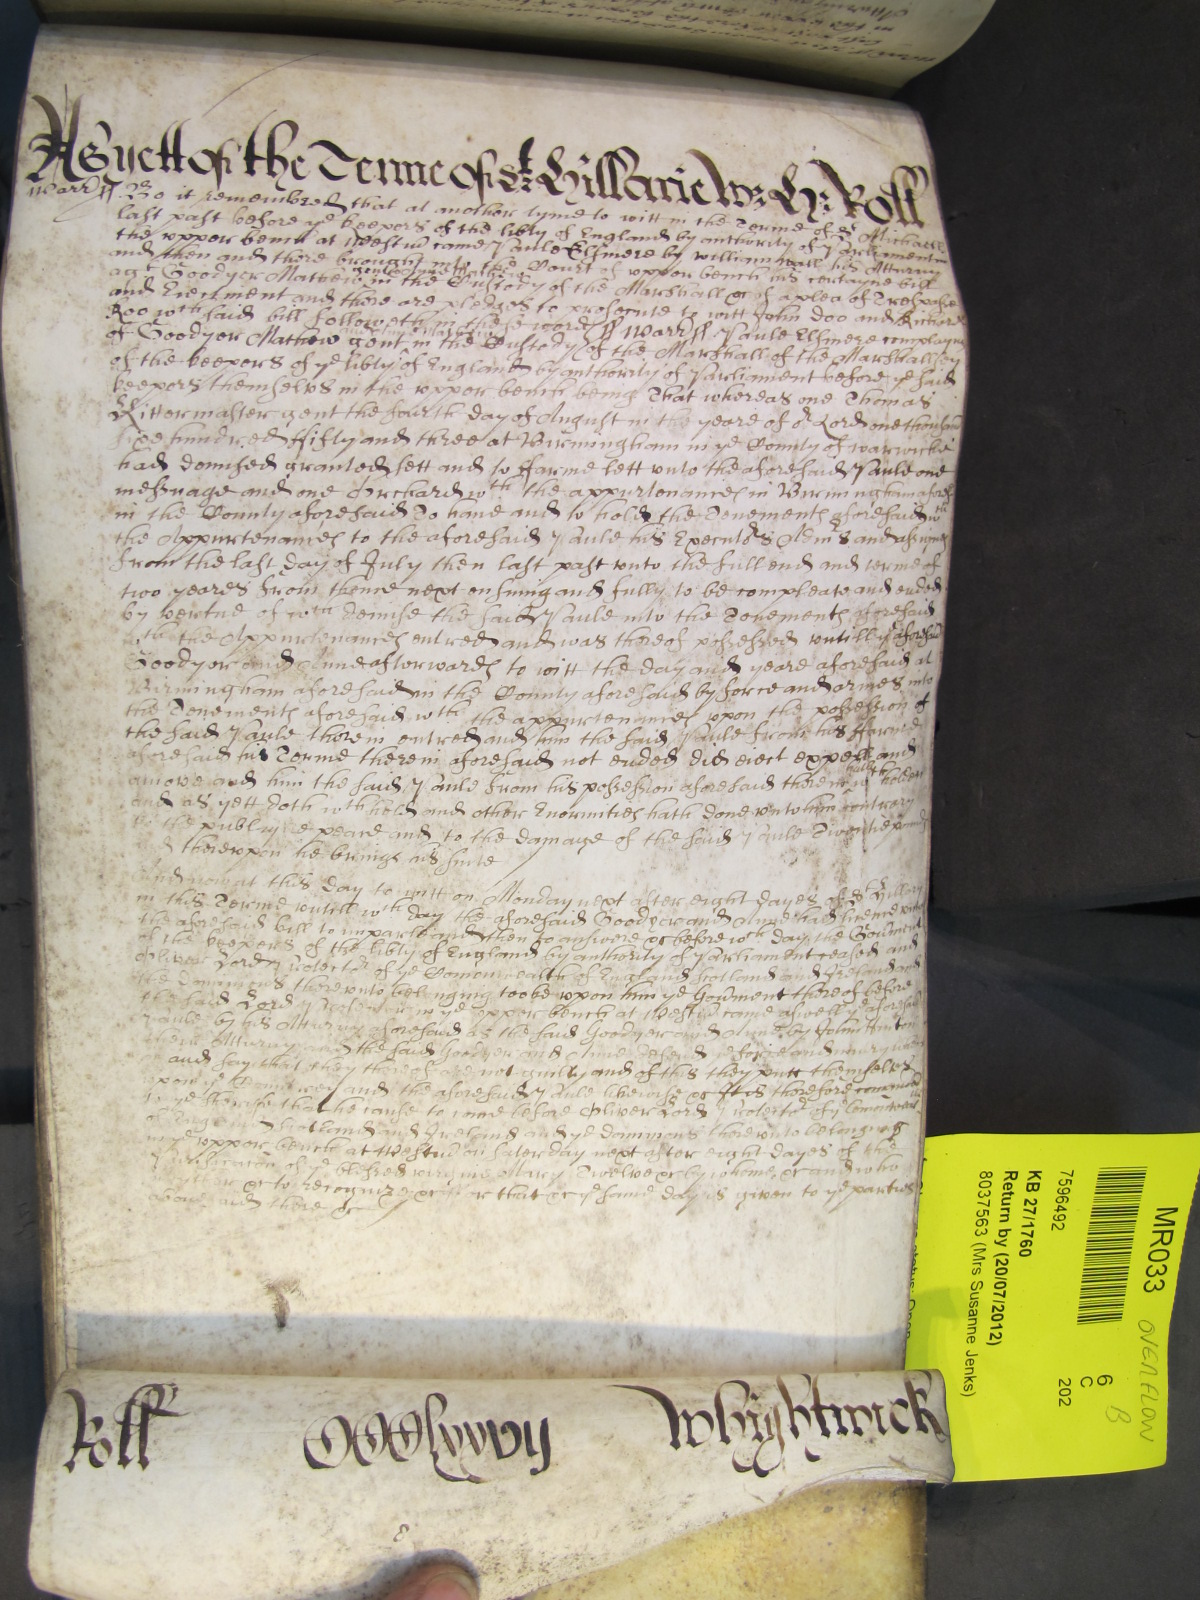 As yett of the Terme of St Hillarie Wz: Hz: Roll
Warr ss Be it remembred that at another tyme to witt in the Terme of St Michaell
last past before ye keepers of the libty of England by authority of Parliament in
the upper bench at Westmr came Paule Elsmere by William Hall his Atturny
and then and there brought into the Court of upper bench his certayne bill
agt Goodyer Mathew in the Custody of the Marshall &c of a plea of Trespasse
and Eiectment and there are pledges to prosecute to witt John Doo and Richard
Roo wch said bill followeth in these words ss Warr ss Paule Elsmere complaynes
of Goodyer Mathew gent in the Custody of the Marshall of the Marshallsey
of the keepers of ye libty of England by authority of Parliament before ye said
keepers themselvs in the upper bench being That whereas one Thomas
Rittermaster gent the fourth day of August in the yeare of or Lord one thousand
sixe hundred fifty and three at Birmingham in ye County of Warwicke
had demised granted sett and to ffarme lett unto the aforesaid Paule one
messuage and one Orchard wth the appurtenances in Birmingham aforesd
in the County aforesaid To have and to hold the Tenements aforesaid wth
the Appurtenances to the aforesaid Paule his Executors Admrs and assignes
from the last day of July then last past unto the full end and terme of
two yeares from thence next ensuing and fully to be compleate and ended
by vertue of wch demise the said Paule into the Tenements aforesaid
wth the Appurtenances entred and was thereof possessed untill ye aforesaid
Goodyer and Anne afterwards to witt the day and yeare aforesaid at
Birmingham aforesaid in the County aforesaid by force and armes into
the Tenements aforesaid wth the appurtenances upon the possession of
the said Paule therein entred and him the said Paule from his ffarme
aforesaid his Terme therein aforesaid not ended did eiect expell and
amove and him the said Paule from his possession aforesaid therein hath wthholden
and as yett doth wthhold and other Enormities hath done unto him contrary
to the publique peace and to the damage of the said Paule Twentie pounds
& thereupon he brings his suite
And now at this day to witt on Monday next after eight dayes of St Hillary
in this Terme untill wch day the aforesaid Goodyer and Anne had licence unto
the aforesaid bill to imparle and then to answere &c before wch day the Goverment
of the keepers of the libty of England by authority of Parliament ceased and
Oliver Lord Protector of ye Comonwealth of England Scotland and Ireland and
the dominions thereunto belonging tooke upon him ye Goverment thereof before
the said Lord Protector in ye upper bench at Westmr came aswell ye aforesaid
Paule by his Atturny aforesaid as the said Goodyer and Anne by John
their Atturny and the said Goodyer and Anne defend ye force and iniury when
&c and say that they thereof are not guilty and of this they putt themselves
upon ye Countrey and the aforesaid Paule likewise &c It is therefore comanded
to ye Sherife that he cause to come before Oliver Lord Protector of ye Comonwealth
of England Scotland and Ireland and ye dominions thereunto belonging
in ye upper bench at Westmr on Saterday next after eight dayes of the
Purificacon of ye blessed virgine Mary Twelve &c by whome &c and who
neither &c to Recognize &c because that &c ye same day is given to ye parties
above said there &c
Roll
Whightwick
MR033
OVERFLOW
B
6
C
202
7596492
KB 27/1760
Return by (20/07/2012)
8037563 (Mrs Susanne Jenks)